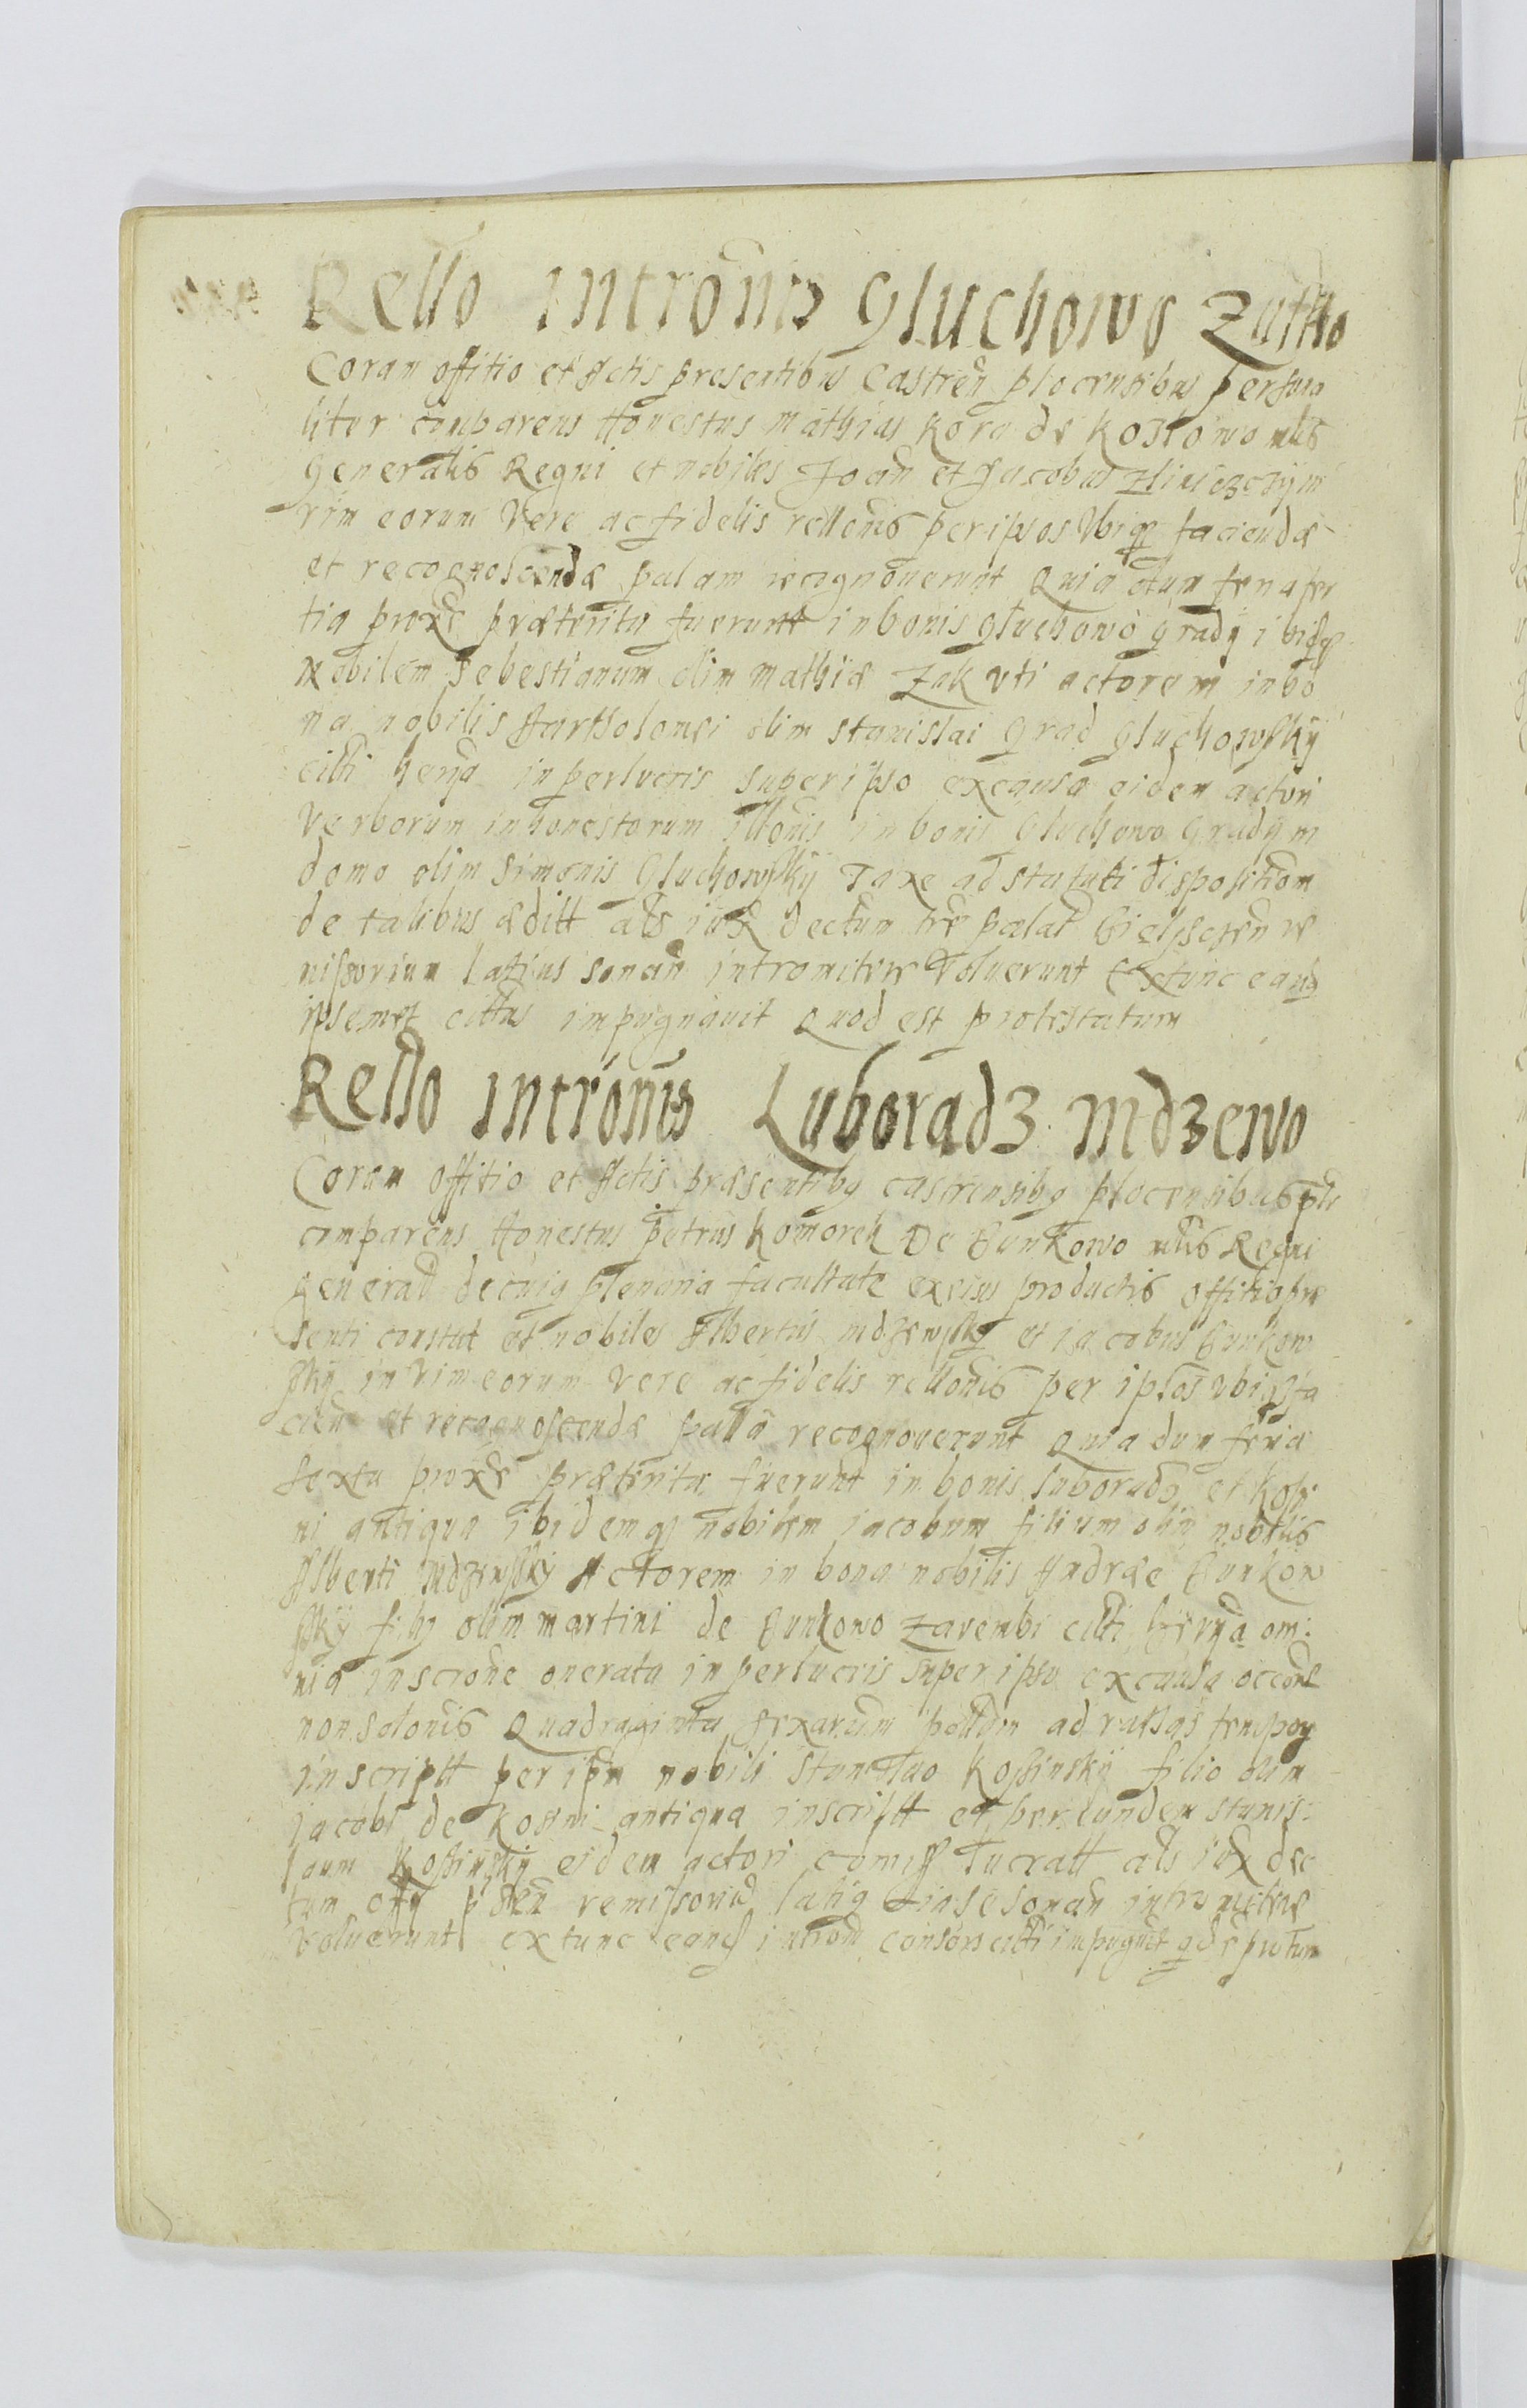 Rello Intronis Gluchowo Zakk
Coram offitio et Actis presentibus Castren plocensibus persona
liter comparens Honestus Mathias Kora de Kozlowo mlis
generalis Regni et nobiles Joan et Jacobus in
vim eorum vere ac fidelis rellonis per ipsos vbiq faciendæ
et recognoscendæ palam recognouerunt Quia dum feria ter
tia proxe præterita fuerunt in bonis Gluchowo Grady ibidq
Nobilem Sebestianum olim Mathiæ Zak vti actorem in bo
na nobilis Bartholomei olim Stanislai Grad Gluchowsky
citti in perlucris super ipso ex causa eidem actori
verborum inhonestorum illonis in bonis Gluchowo Grady in
domo olim Simonis Gluchowsky Taxe ad statuti dispositiom
de talibus æditt als iux dectum tre palat Bielscen re
missorium latius sonan intromitere voluerunt Extunc eanq
ipsemet cittus impugnauit Quod est protestatum
Rello Intronis Luboradz Mdzewo
Coram offitio et Actis præsentibq castrensibq plocensibus plr
comparens Honestus Petrus Komorek De Bunkowo mlis Regni
general de cuiq plenaria facultate ex eius productis offitio pre
senti constat et nobiles Albertus Mdzewsky et Jacobus Bunkow
sky in vim eorum vere ac fidelis rellonis per ipsos vbiq fa
cien et recognoscendæ palā recognouerunt Quia dum feria
sexta proxe præterita fuerunt in bonis Luboradz et Kossi
ni antiqua ibidemq nobilem Jacobum filium olim nobilis
Alberti Mdzewsky Actorem in bona nobilis Andræe Bunkow
sky filij olim Martini de Bunkowo Zarembi citti om:
nia inscrone onerata in perlucris super ipso ex causa occone
non solonis Quadraginta sexarum polldm ad rallas tempoy
inscriptt per ipm nobili Stanislao Kossinsky filio olim
Jacobi de Kossini antiqua inscriptt et per eundem Stanis:
laum Kossinsky eidem actori comiss lucratt als iux dec
tum offy pnten remissoriu latiq in se sonan intromitere
voluerunt extunc eanq introm consors citti impugnit qd e protum